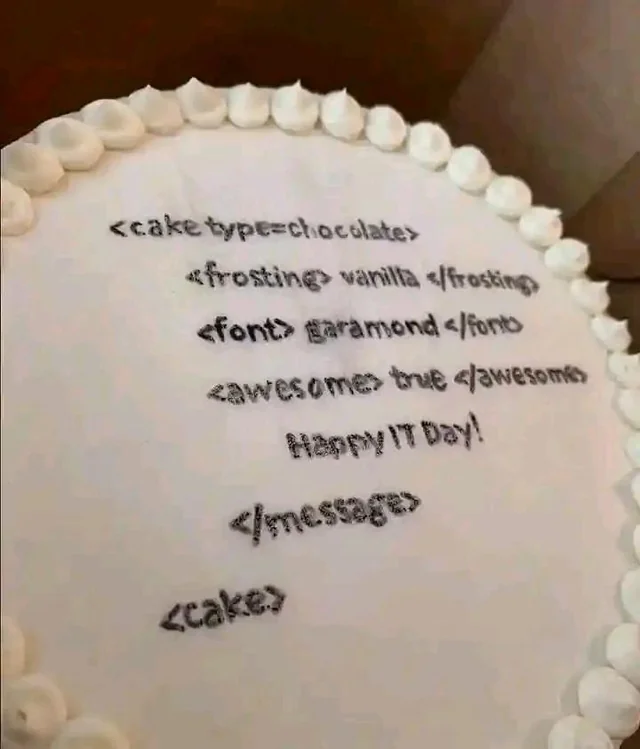 <cake type=chocolate>
<frosting> vanilla </frosting>
<font> garamond </font>
<awesome> true </awesome>
Happy IT Day!
</message>
<cake>